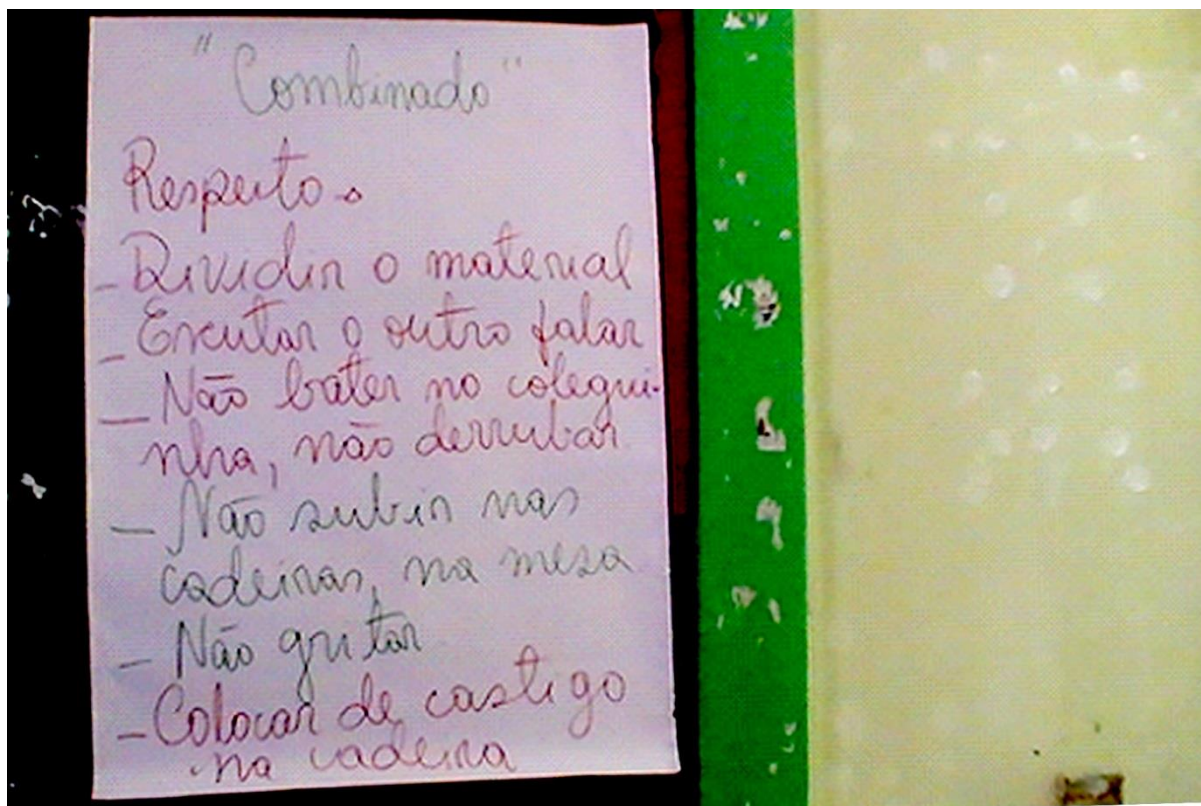 "Combinado"
Respeito.
- Dividir o material
- Escutar o outro falar
- Não bater no colegui-
nha, não derrubar
- Não subir nas
cadeiras, na mesa
- Não gritar
- Colocar de castigo
na cadeira